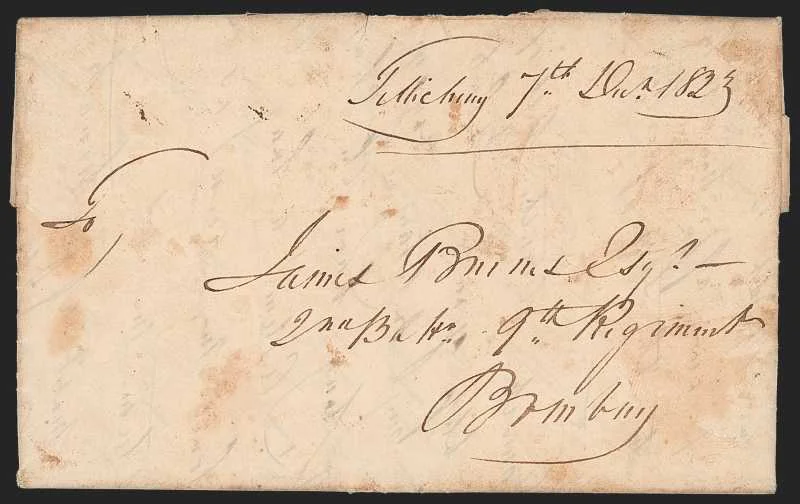 Tellicherry 7th Decr. 1823
To
James Burnes Esqr. —
2nd Battn. 9th Regiment
Bombay